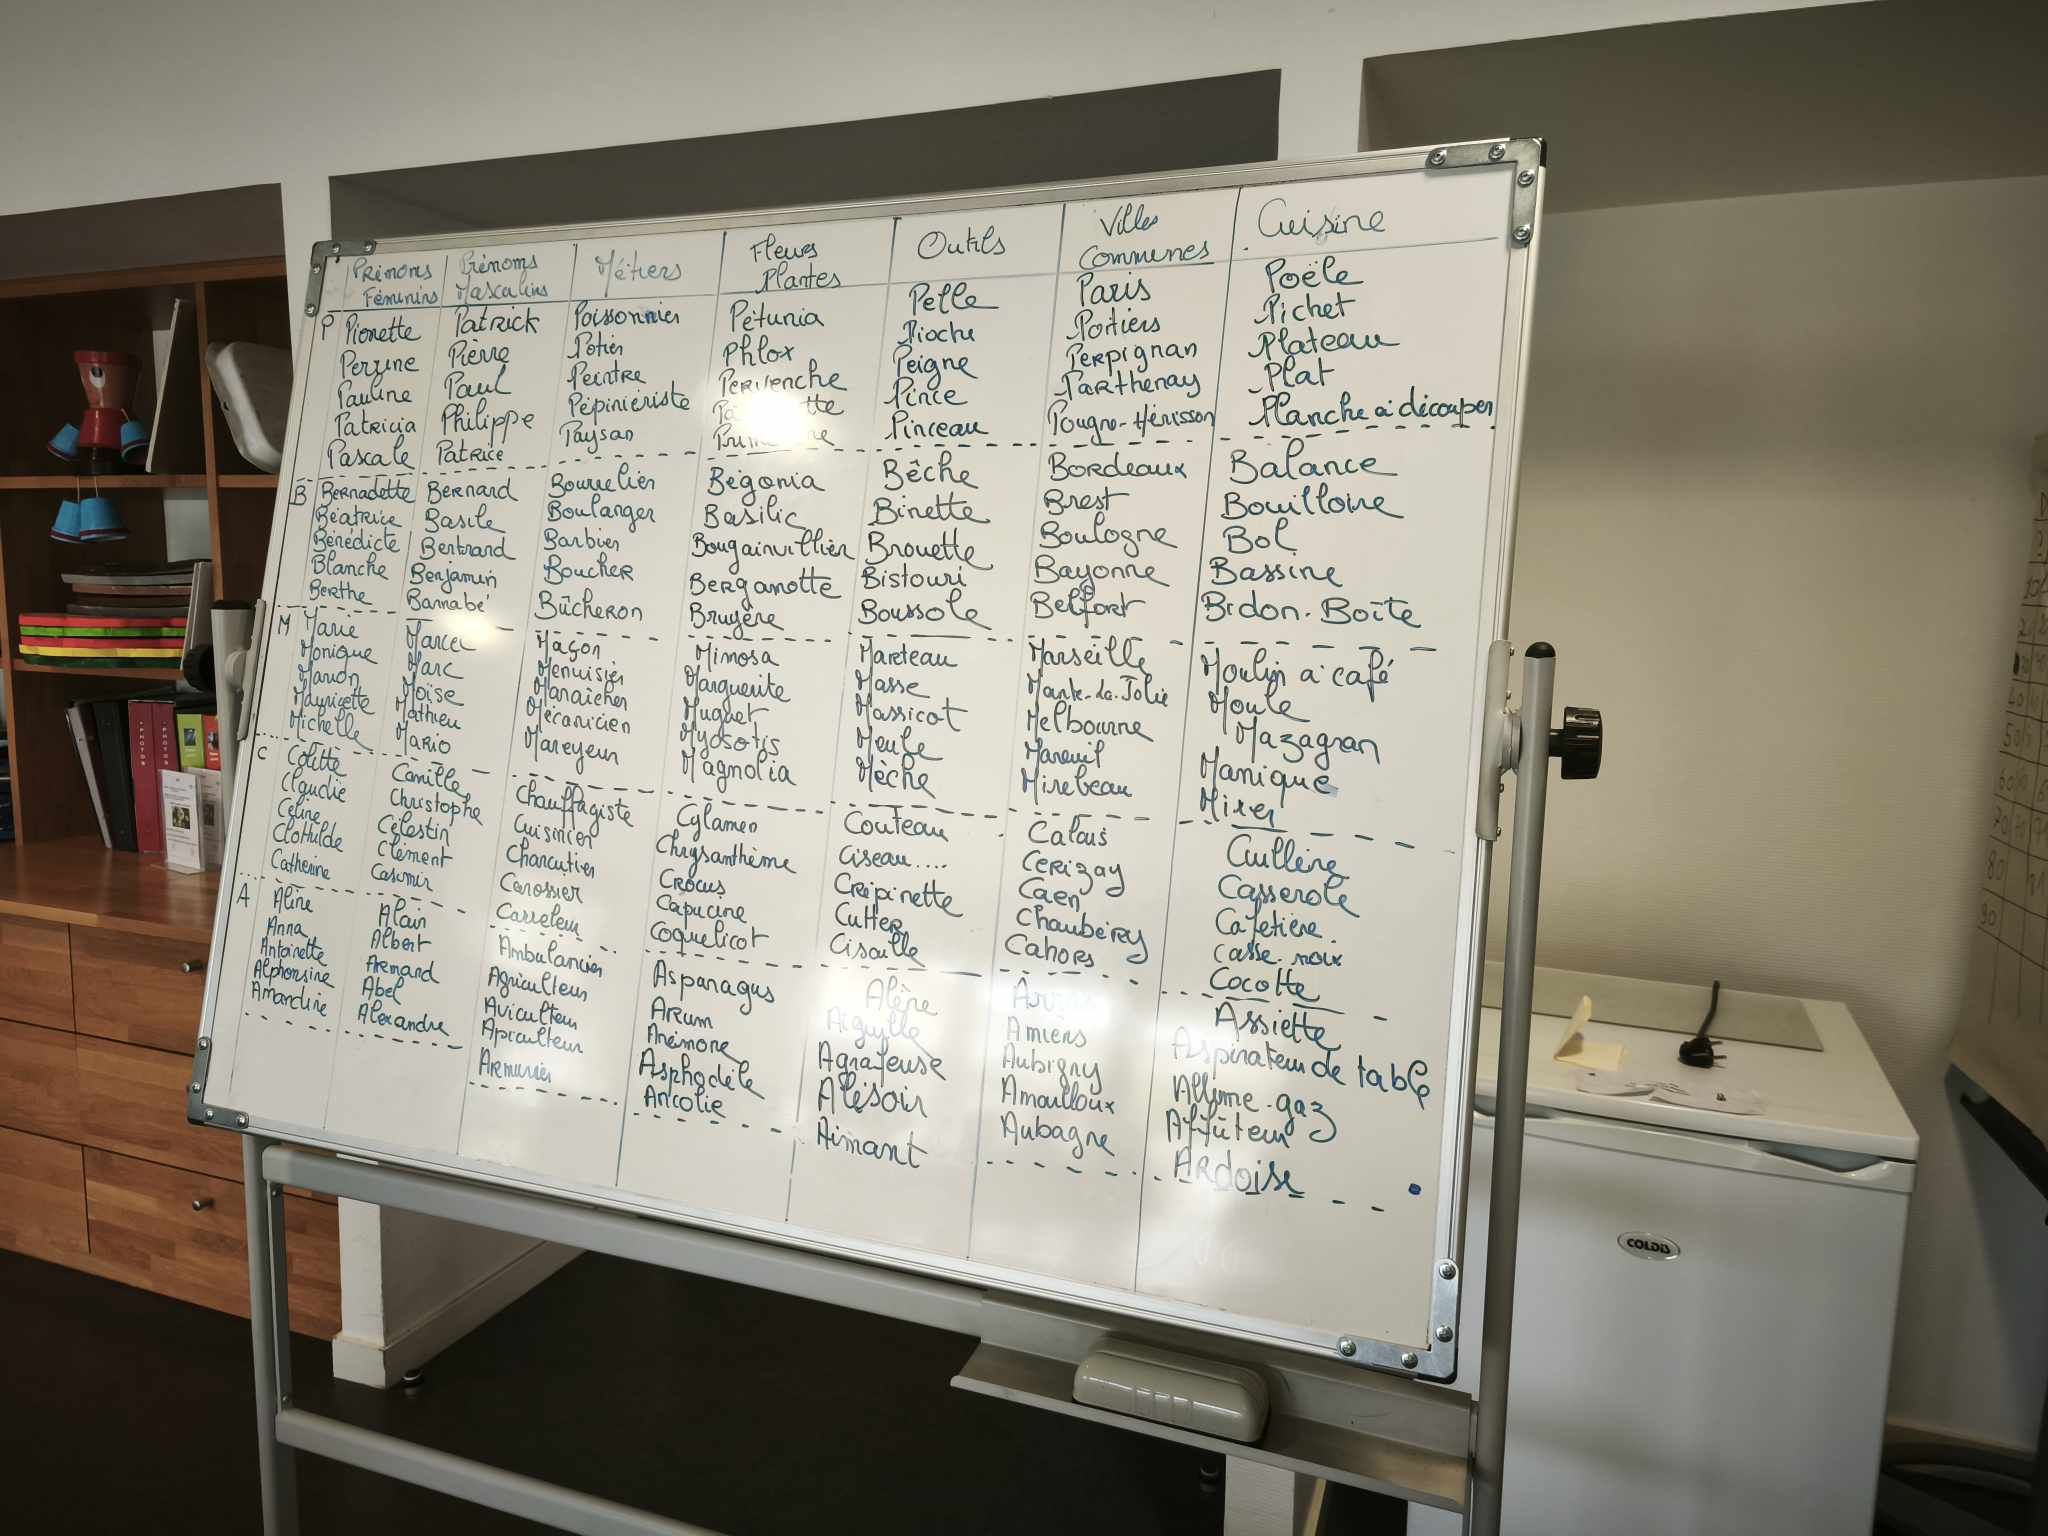 Prénoms Féminins | Prénoms Masculins | Métiers | Fleurs Plantes | Outils | Villes Communes | Cuisine
P | Pierrette | Patrick | Poissonnier | Pétunia | Pelle | Paris | Poële
Perrine | Pierre | Potier | Phlox | Pioche | Poitiers | Pichet
Pauline | Paul | Peintre | Pervenche | Peigne | Perpignan | Plateau
Patricia | Philippe | Pépiniériste | Pince | Parthenay | Plat
Pascale | Patrice | Paysan | Pinceau | Pougne-Hérisson | Planche à découper
B | Bernadette | Bernard | Bourrelier | Bégonia | Bêche | Bordeaux | Balance
Béatrice | Basile | Boulanger | Basilic | Binette | Brest | Bouilloire
Bénédicte | Bertrand | Barbier | Bougainvillier | Brouette | Boulogne | Bol
Blanche | Benjamin | Boucher | Bergamotte | Bistouri | Bayonne | Bassine
Berthe | Barnabé | Bûcheron | Bruyère | Boussole | Belfort | Bidon. Boîte
M | Marie | Marcel | Maçon | Mimosa | Marteau | Marseille | Moulin à café
Monique | Marc | Menuisier | Marguerite | Masse | Mante-la-Jolie | Moule
Marion | Moïse | Maraîcher | Muguet | Massicot | Melbourne | Mazagran
Mauricette | Mathieu | Mécanicien | Myosotis | Meule | Mareuil | Manique
Michelle | Mario | Mareyeur | Magnolia | Mèche | Mirebeau | Mixer
C | Colette | Camille | Chauffagiste | Cylamen | Couteau | Calais | Cuillère
Claudie | Christophe | Cuisinier | Chrysanthème | Ciseau.... | Cerizay | Casserole
Céline | Célestin | Charcutier | Crocus | Crépinette | Caen | Cafetière
Clothilde | Clément | Carossier | Capucine | Cutter | Chambéry | Casse-noix
Catherine | Casimir | Carreleur | Coquelicot | Cisaille | Cahors | Cocotte
A | Aline | Alain | Ambulancier | Asparagus | Alène | Assiette
Anna | Albert | Agriculteur | Arum | Aiguille | Amiens | Aspirateur de table
Antoinette | Armand | Aviculteur | Anémone | Agrafeuse | Aubigny | Allume-gaz
Alphonsine | Abel | Apiculteur | Asphodèle | Alésoir | Amailloux | Affûteur
Amandine | Alexandre | Armurier | Ancolie | Aimant | Aubagne | Ardoise
COLDIS